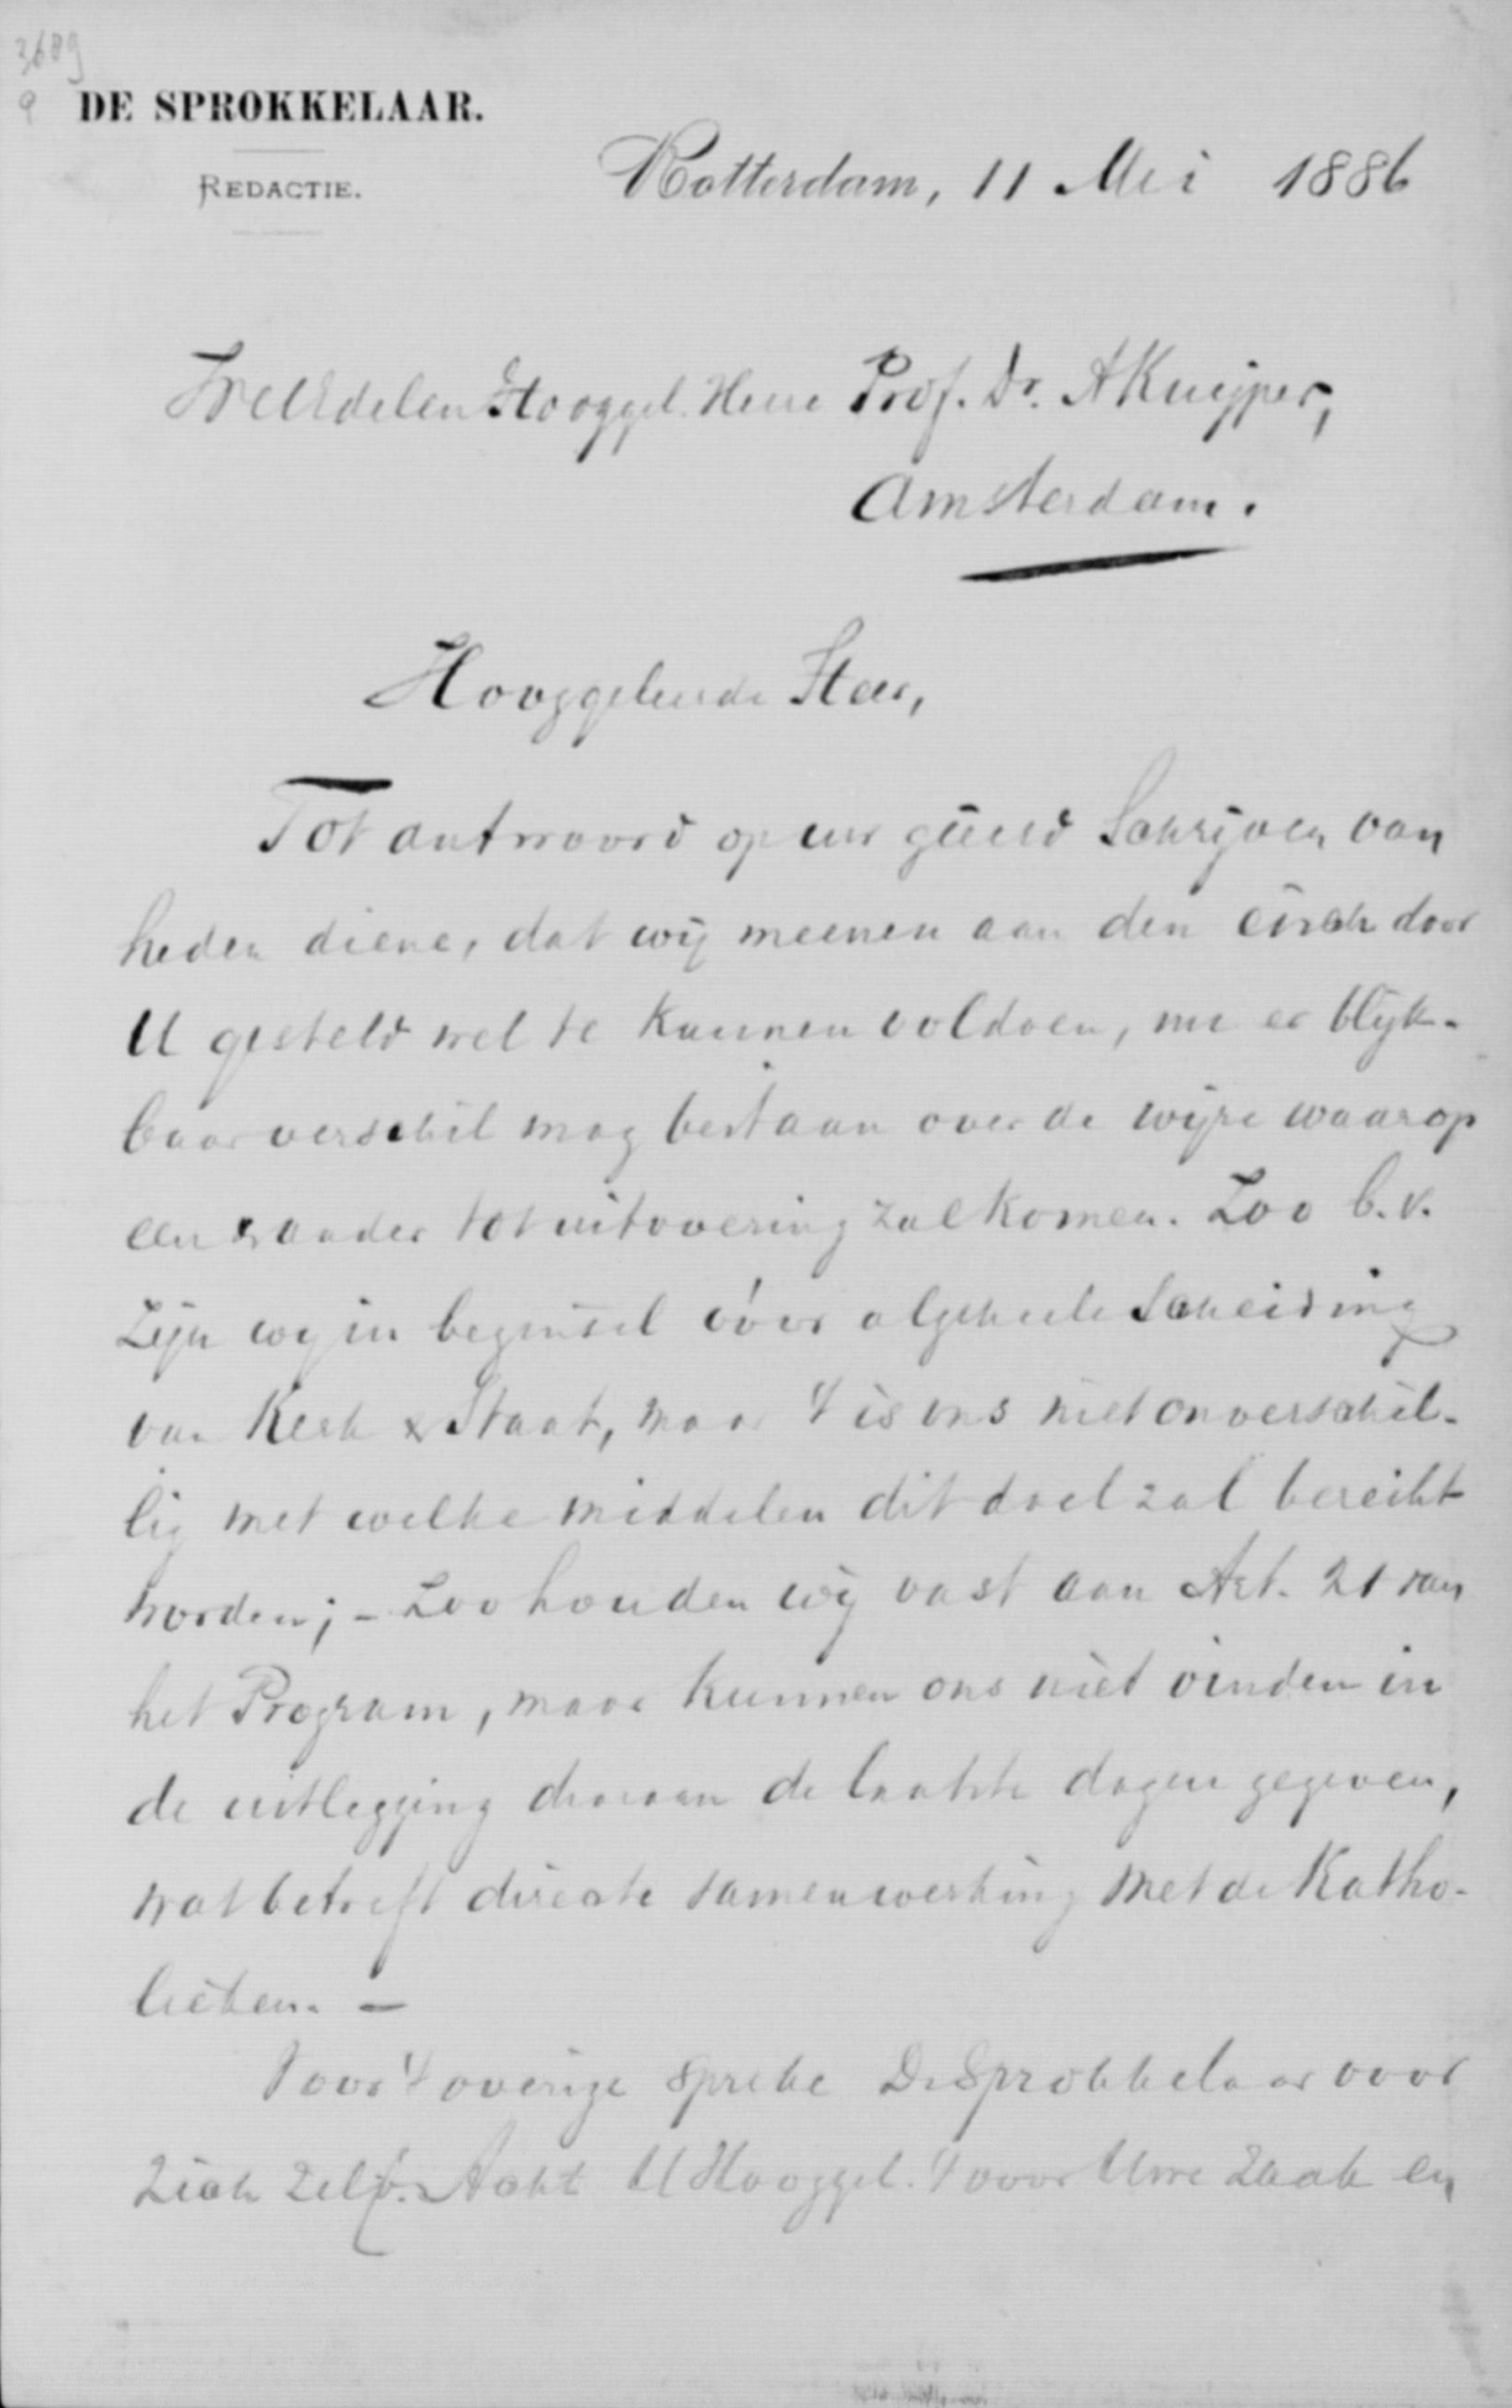 3689
9
DE SPROKKELAAR.
REDACTIE.
Rotterdam, 11 Mei 1886
WelEdelen Hooggel. Heere Prof. Dr. A Kuijper,
Amsterdam.
Hooggeleerde Heer,
Tot antwoord op uw geëerd Schrijven van
heden diene, dat wij meenen aan den eisch door
U gesteld wel te kunnen voldoen, nu er blijk-
baar verschil mag bestaan over de wijze waarop
een & ander tot uitvoering zal komen. Zoo b.v.
zijn wij in beginsel vóór algeheele Scheiding
van Kerk & Staat, maar 't is ons niet onverschil-
lig met welke middelen dit doel zal bereikt
worden; - Zoo houden wij vast aan Art. 21 van
het Program, maar kunnen ons niet vinden in
de uitlegging daaraan de laatste dagen gegeven,
wat betreft directe samenwerking met de Katho-
lieken. -
Voor 't overige spreke De Sprokkelaar voor
zich zelf. Acht U Hooggel. 't voor Uwe zaak en